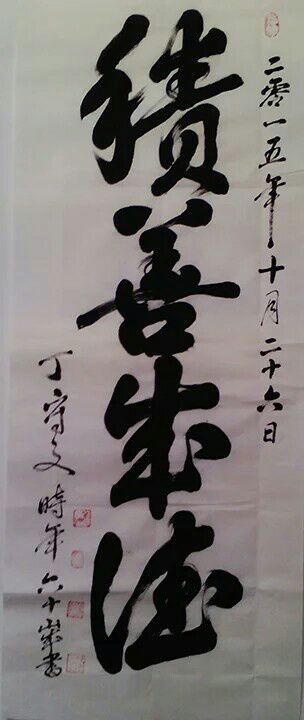 二零一五年十月二十六日
積善成德
丁守文時年六十歲書